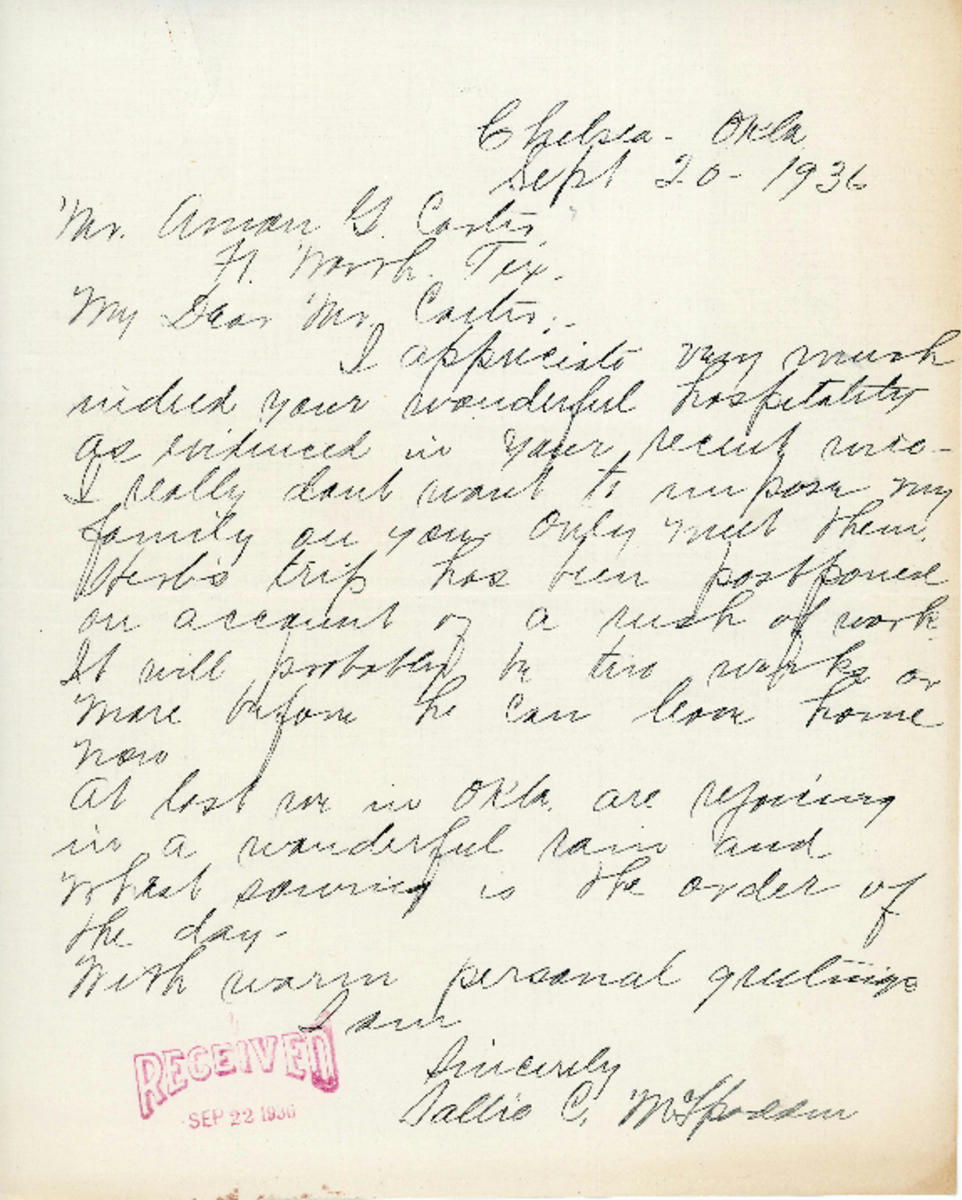 Chelsea - Okla
Sept 20 - 1936
Mr. Amon G. Carter,
Ft. Worth. Tex.
My Dear Mr. Carter:-
I appreciate very much
indeed your wonderful hospitality
as evidenced in your recent
I really dont want to impose my
family on you. Only meet them.
Herb's trip has been postponed
on account of a rush of work.
It will probably be two weeks or
more before he can leave home
now
At last we in Okla. are rejoicing
in a wonderful rain and
wheat sowing is the order of
the day -
With warm personal greetings
I am
Sincerely
Sallie C. McSpadden
RECEIVED
SEP 22 1936